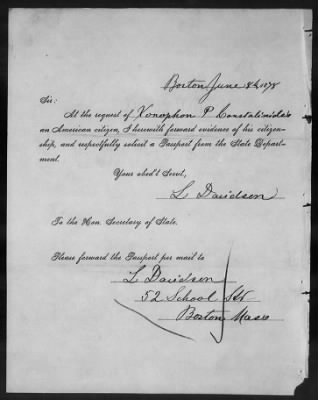 Boston June 8th 1878
Sir:
At the request of Xonophon P Constatinides
an American citizen, I herewith forward evidence of his citizen-
ship, and respectfully solicit a Passport from the State Depart-
ment.
Your obed't Servt,
L Davidson
To the Hon. Secretary of State.
Please forward the Passport per mail to
L Davidson
52 School Str
Boston Mass